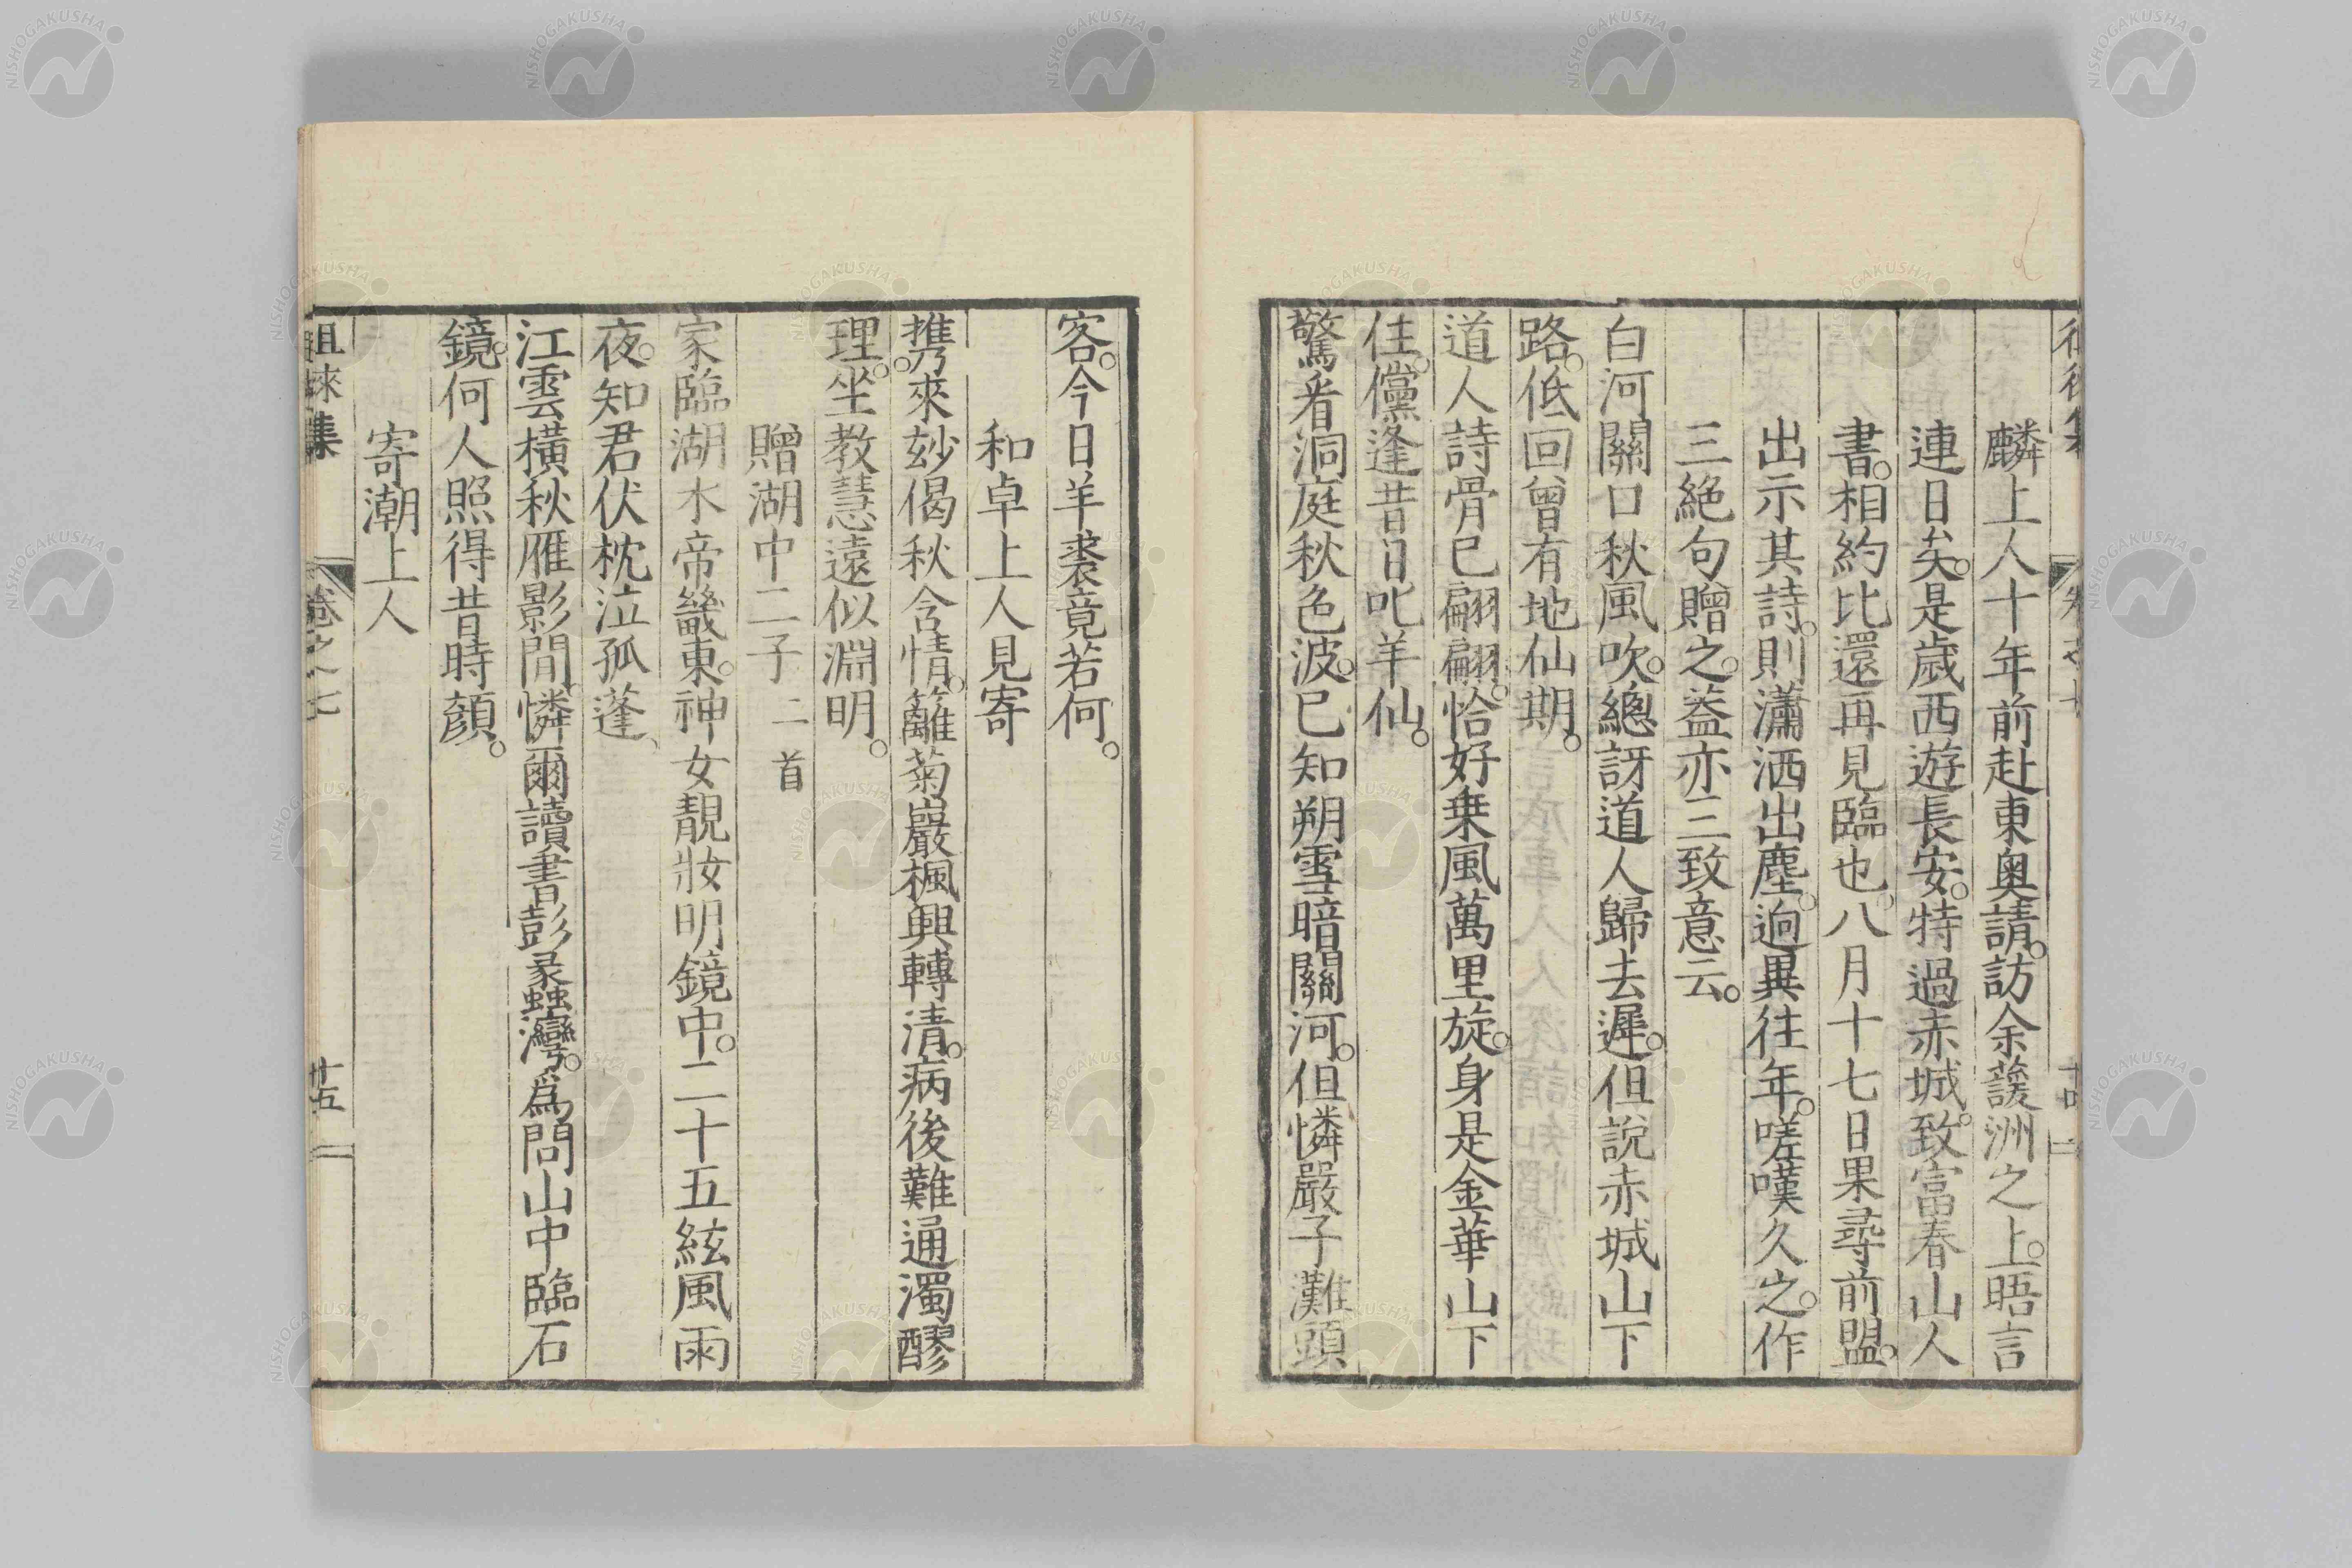 麟上人十年前赴東奥請。訪余蘐洲之上。晤言
連日矣。是歲西遊長安。特過赤城。致富春山人
書。相約比還再見臨也。八月十七日果尋前盟。
出示其詩。則瀟洒出塵。迥異往年。嗟嘆久之。作
三絶句贈之。葢亦三致意云。
白河關口秋風吹。總訝道人歸去遲。但說赤城山下
路。低回曾有地仙期。
道人詩骨已翩翩。恰好乗風萬里旋。身是金華山下
住。儻逢昔日叱羊仙。
驚看洞庭秋色波。已知朔雪暗關河。但憐嚴子灘頭
客。今日羊裘竟若何。
和卓上人見寄
携來玅偈秋含情。籬菊巖楓興轉清。病後難通濁醪
理。坐教慧遠似淵明。
贈湖中二子 二首
家臨湖水帝畿東。神女靚妝明鏡中。二十五絃風雨
夜。知君伏枕泣孤蓬、
江雲橫秋雁影閒。憐爾讀書彭蠡灣。爲問山中臨石
鏡。何人照得昔時顏。
寄潮上人
徂徠集 卷之七 十五
NISHOGAKUSHA